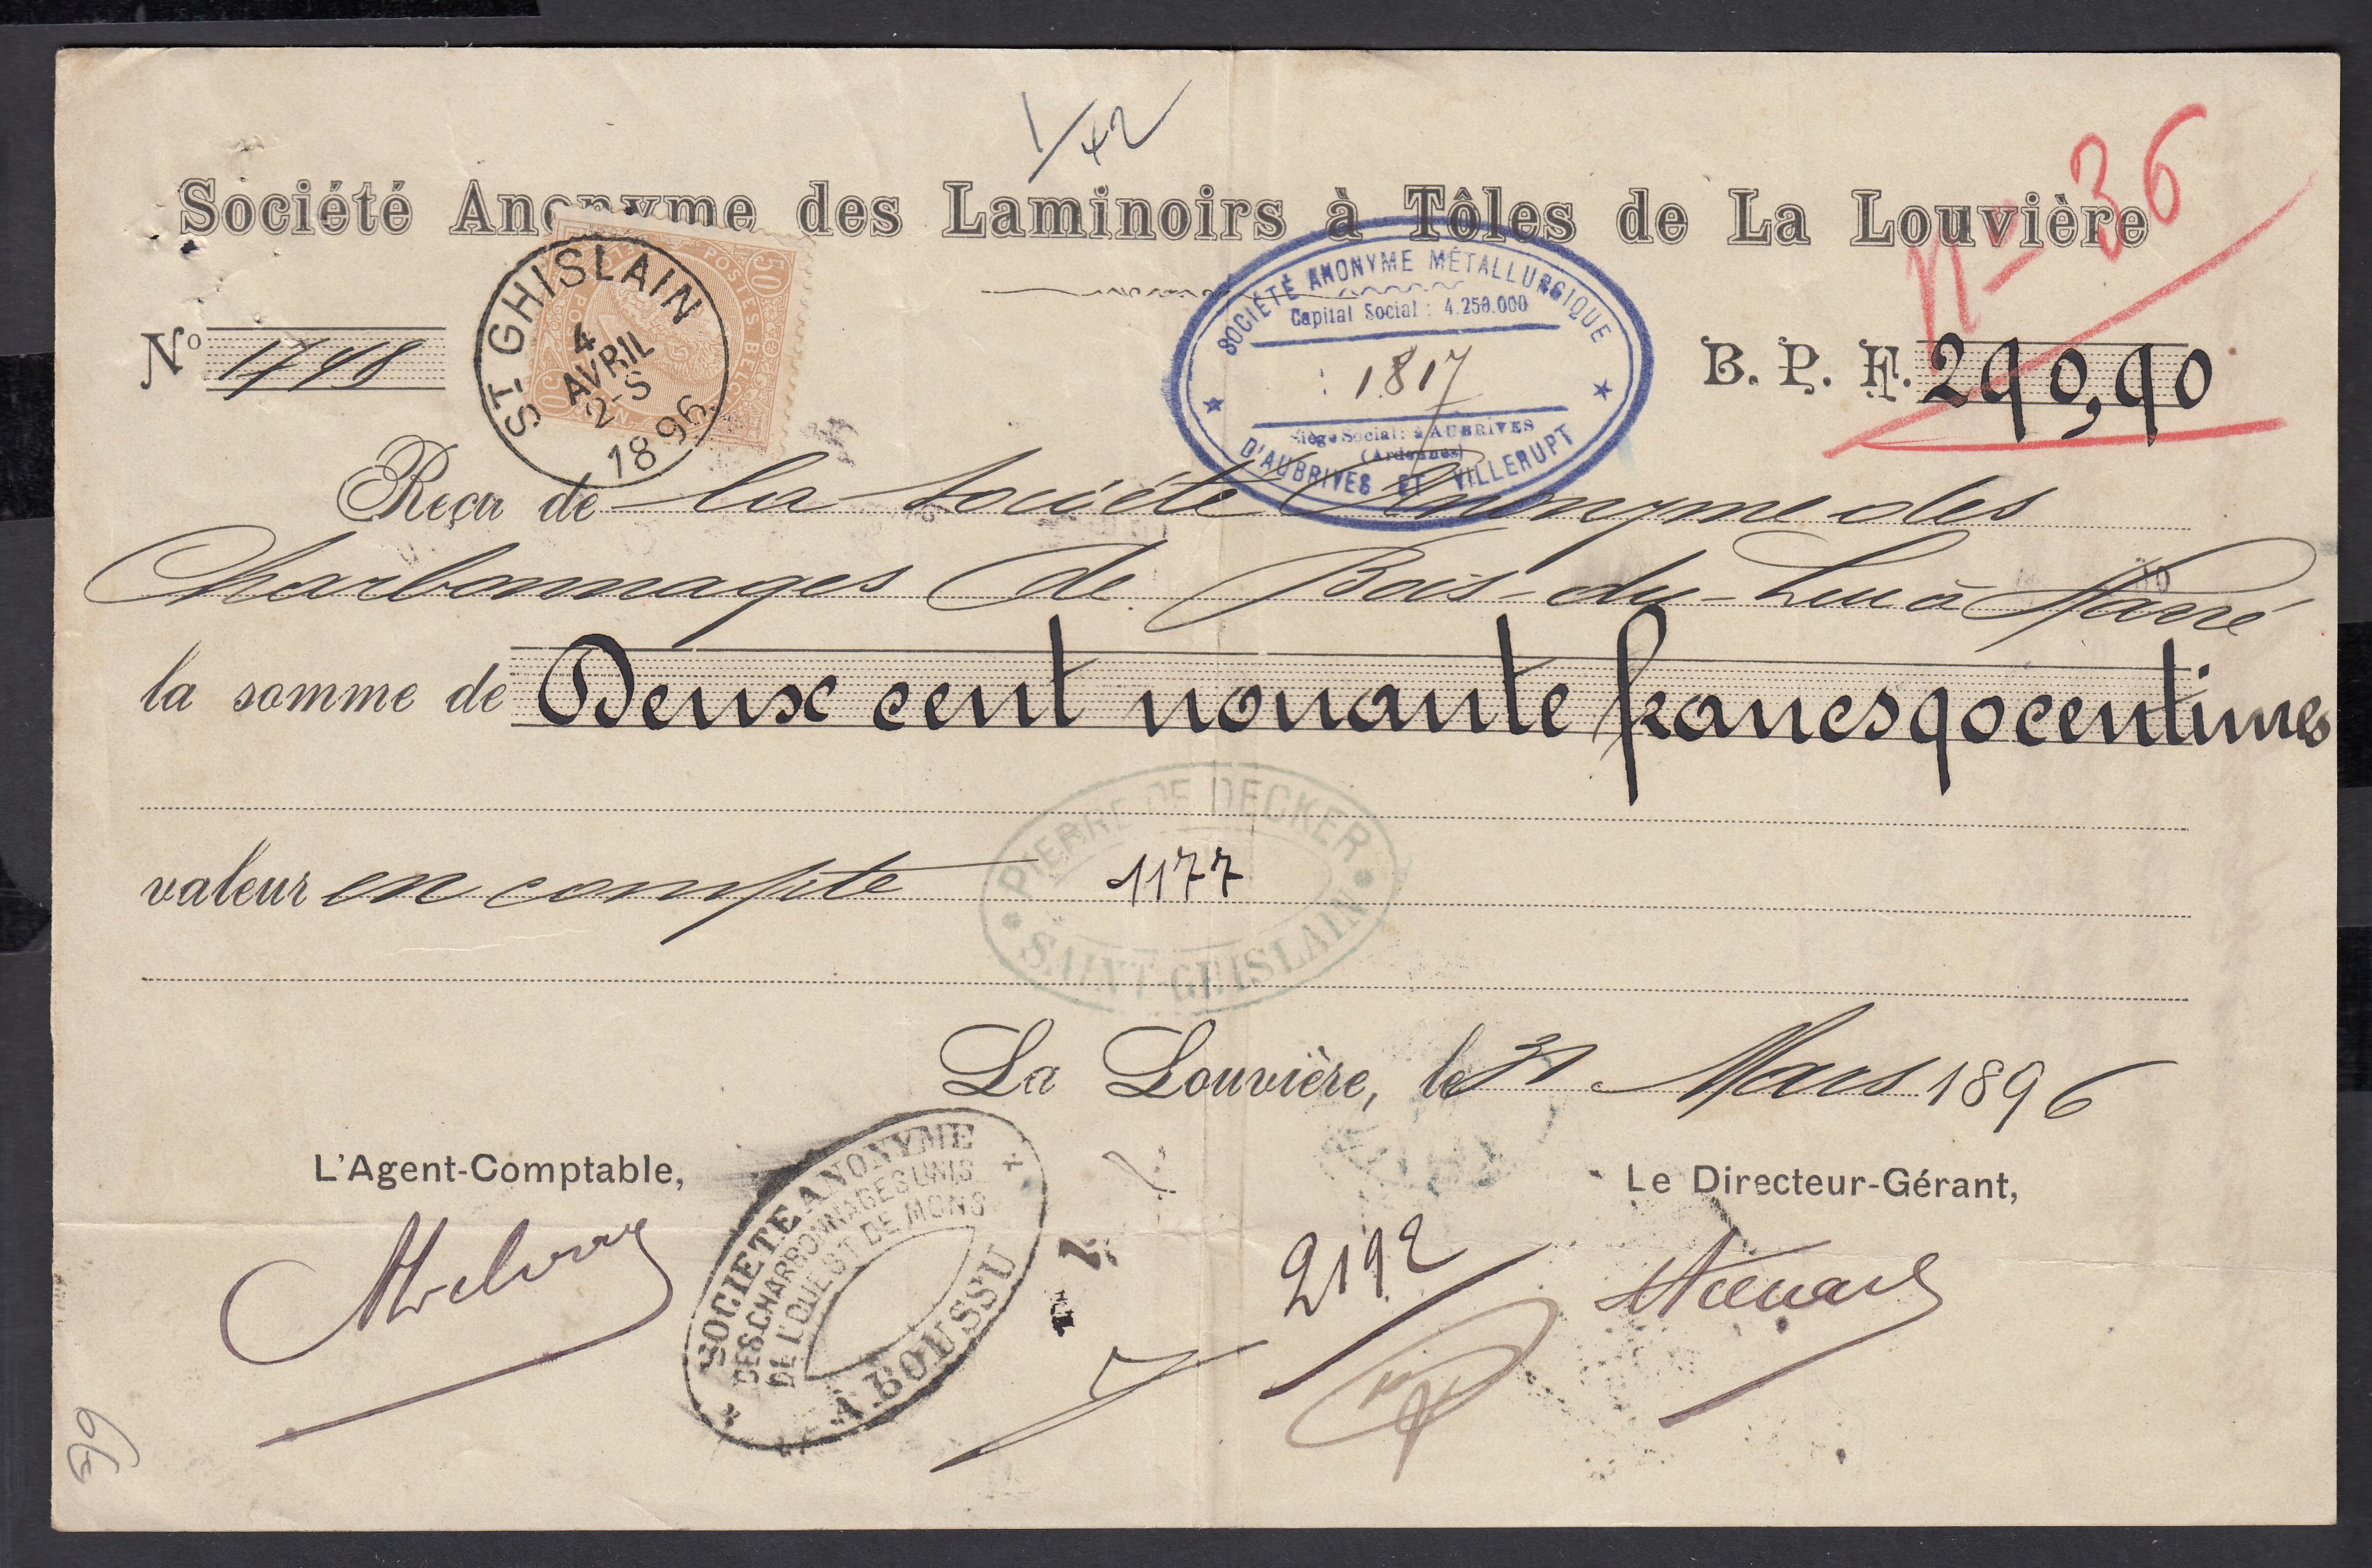 1/42
Société Anonyme des Laminoirs à Tôles de La Louvière
N° 36
50 POSTES BELGIQUE 50
ST GHISLAIN
4
AVRIL
2-S
1896
SOCIÉTÉ ANONYME MÉTALLURGIQUE
Capital Social : 4.250.000
1817
Siège Social: à AUBRIVES
(Ardennes)
D'AUBRIVES ET VILLERUPT
N° 1748
B. P. F. 290,90
Reçu de la Société Anonyme des
Charbonnages de Bois-du-Luc à Havré
la somme de Deux cent nonante francs 90 centimes
PIERRE DE DECKER
valeur en compte 1177
SAINT-GHISLAIN
La Louvière, le 31 Mars 1896
L'Agent-Comptable,
Le Directeur-Gérant,
SOCIETE ANONYME
DES CHARBONNAGES UNIS
DE L'OUEST DE MONS
A BOUSSU
2192